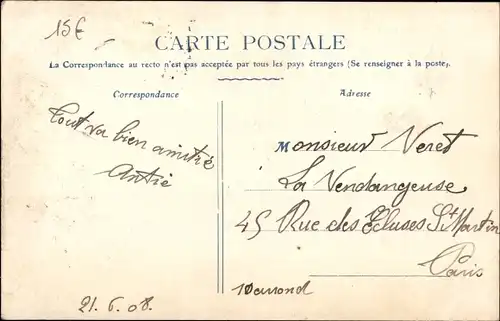 15€
CARTE POSTALE
La Correspondance au recto n'est pas acceptée par tous les pays étrangers (Se renseigner à la poste).
Correspondance
Adresse
Tout va bien amitié
Monsieur Veret
La Vendangeuse
45 Rue des Ecluses St Martin
Paris
21.6.08.